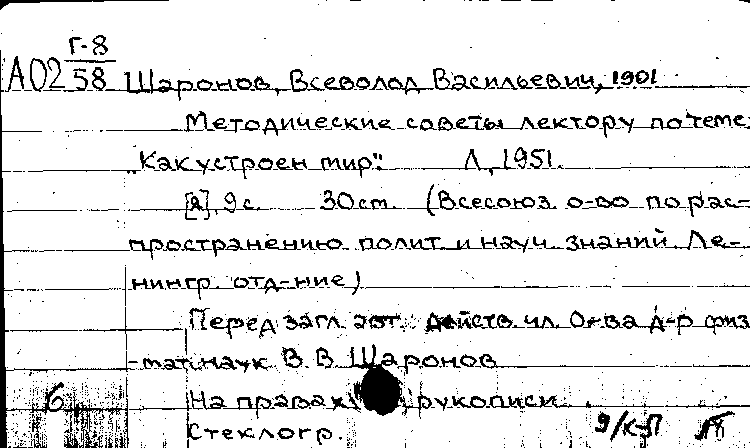 Г-8
А02 58 Шаронов, Всеволод Васильевич, 1901
Методические советы лектору по теме:
„Как устроен мир". Л., 1951.
[2], 9 с. 30 см. (Всесоюз. о-во по рас-
пространению полит. и науч. знаний. Ле-
нингр. отд-ние)
Перед загл. авт.: действ. чл. О-ва д-р физ
-мат. наук В. В. Шаронов
На правах рукописи.
6
Стеклогр.
9/К-П